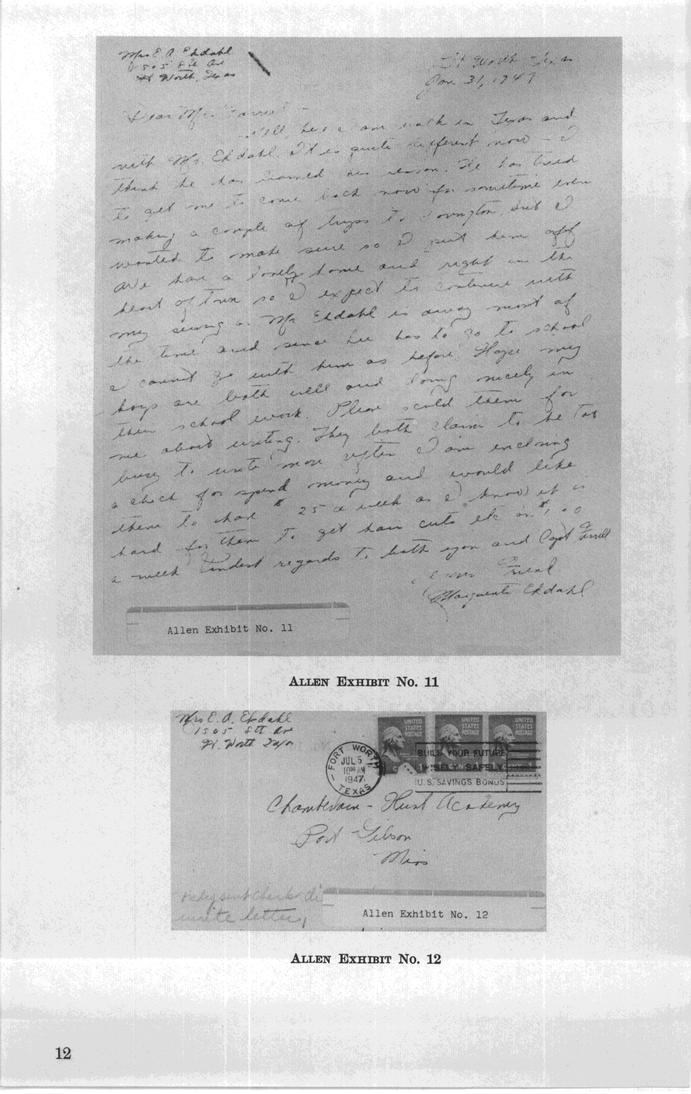 Mrs E. A. Ekdahl
1505 8th Av
Ft Worth, Texas
Ft Worth Texas
Jan 31, 1947
Dear Mrs Farrell -
Well, here I am back in Texas and
with Mr. Ekdahl. It is quite different now - I
think he has learned his reason. He has tried
to get me to come back now for sometime even
making a couple of trips to Covington. but I
wanted to make sure so I put him off
We have a lovely home and right in the
heart of town so I expect to continue with
my sewing as Mr Ekdahl is away most of
the time and since Lee has to go to school
I cannot go with him as before. Hope my
boys are both well and doing nicely in
their school work. Please scold them for
me about writing. They both claim to be too
busy to write more often I am enclosing
a check for spend money and would like
them to have 25 a week as I know it is
hard for them to get hair cuts etc on
a week Kindest regards to both you and Capt Farrell
Marguerite Ekdahl
Allen Exhibit No. 11
ALLEN EXHIBIT No. 11
Mrs E. A. Ekdahl
1505 8th Av
Ft. Worth Texas
UNITED STATES POSTAGE
UNITED STATES POSTAGE
UNITED STATES POSTAGE
FORT WORTH
JUL 5
1947
TEXAS
BUILD YOUR FUTURE
WISELY SAFELY
U.S. SAVINGS BONDS
Chamberlain - Hunt Academy
Port Gibson
Miss
write letter,
Allen Exhibit No. 12
ALLEN EXHIBIT No. 12
12